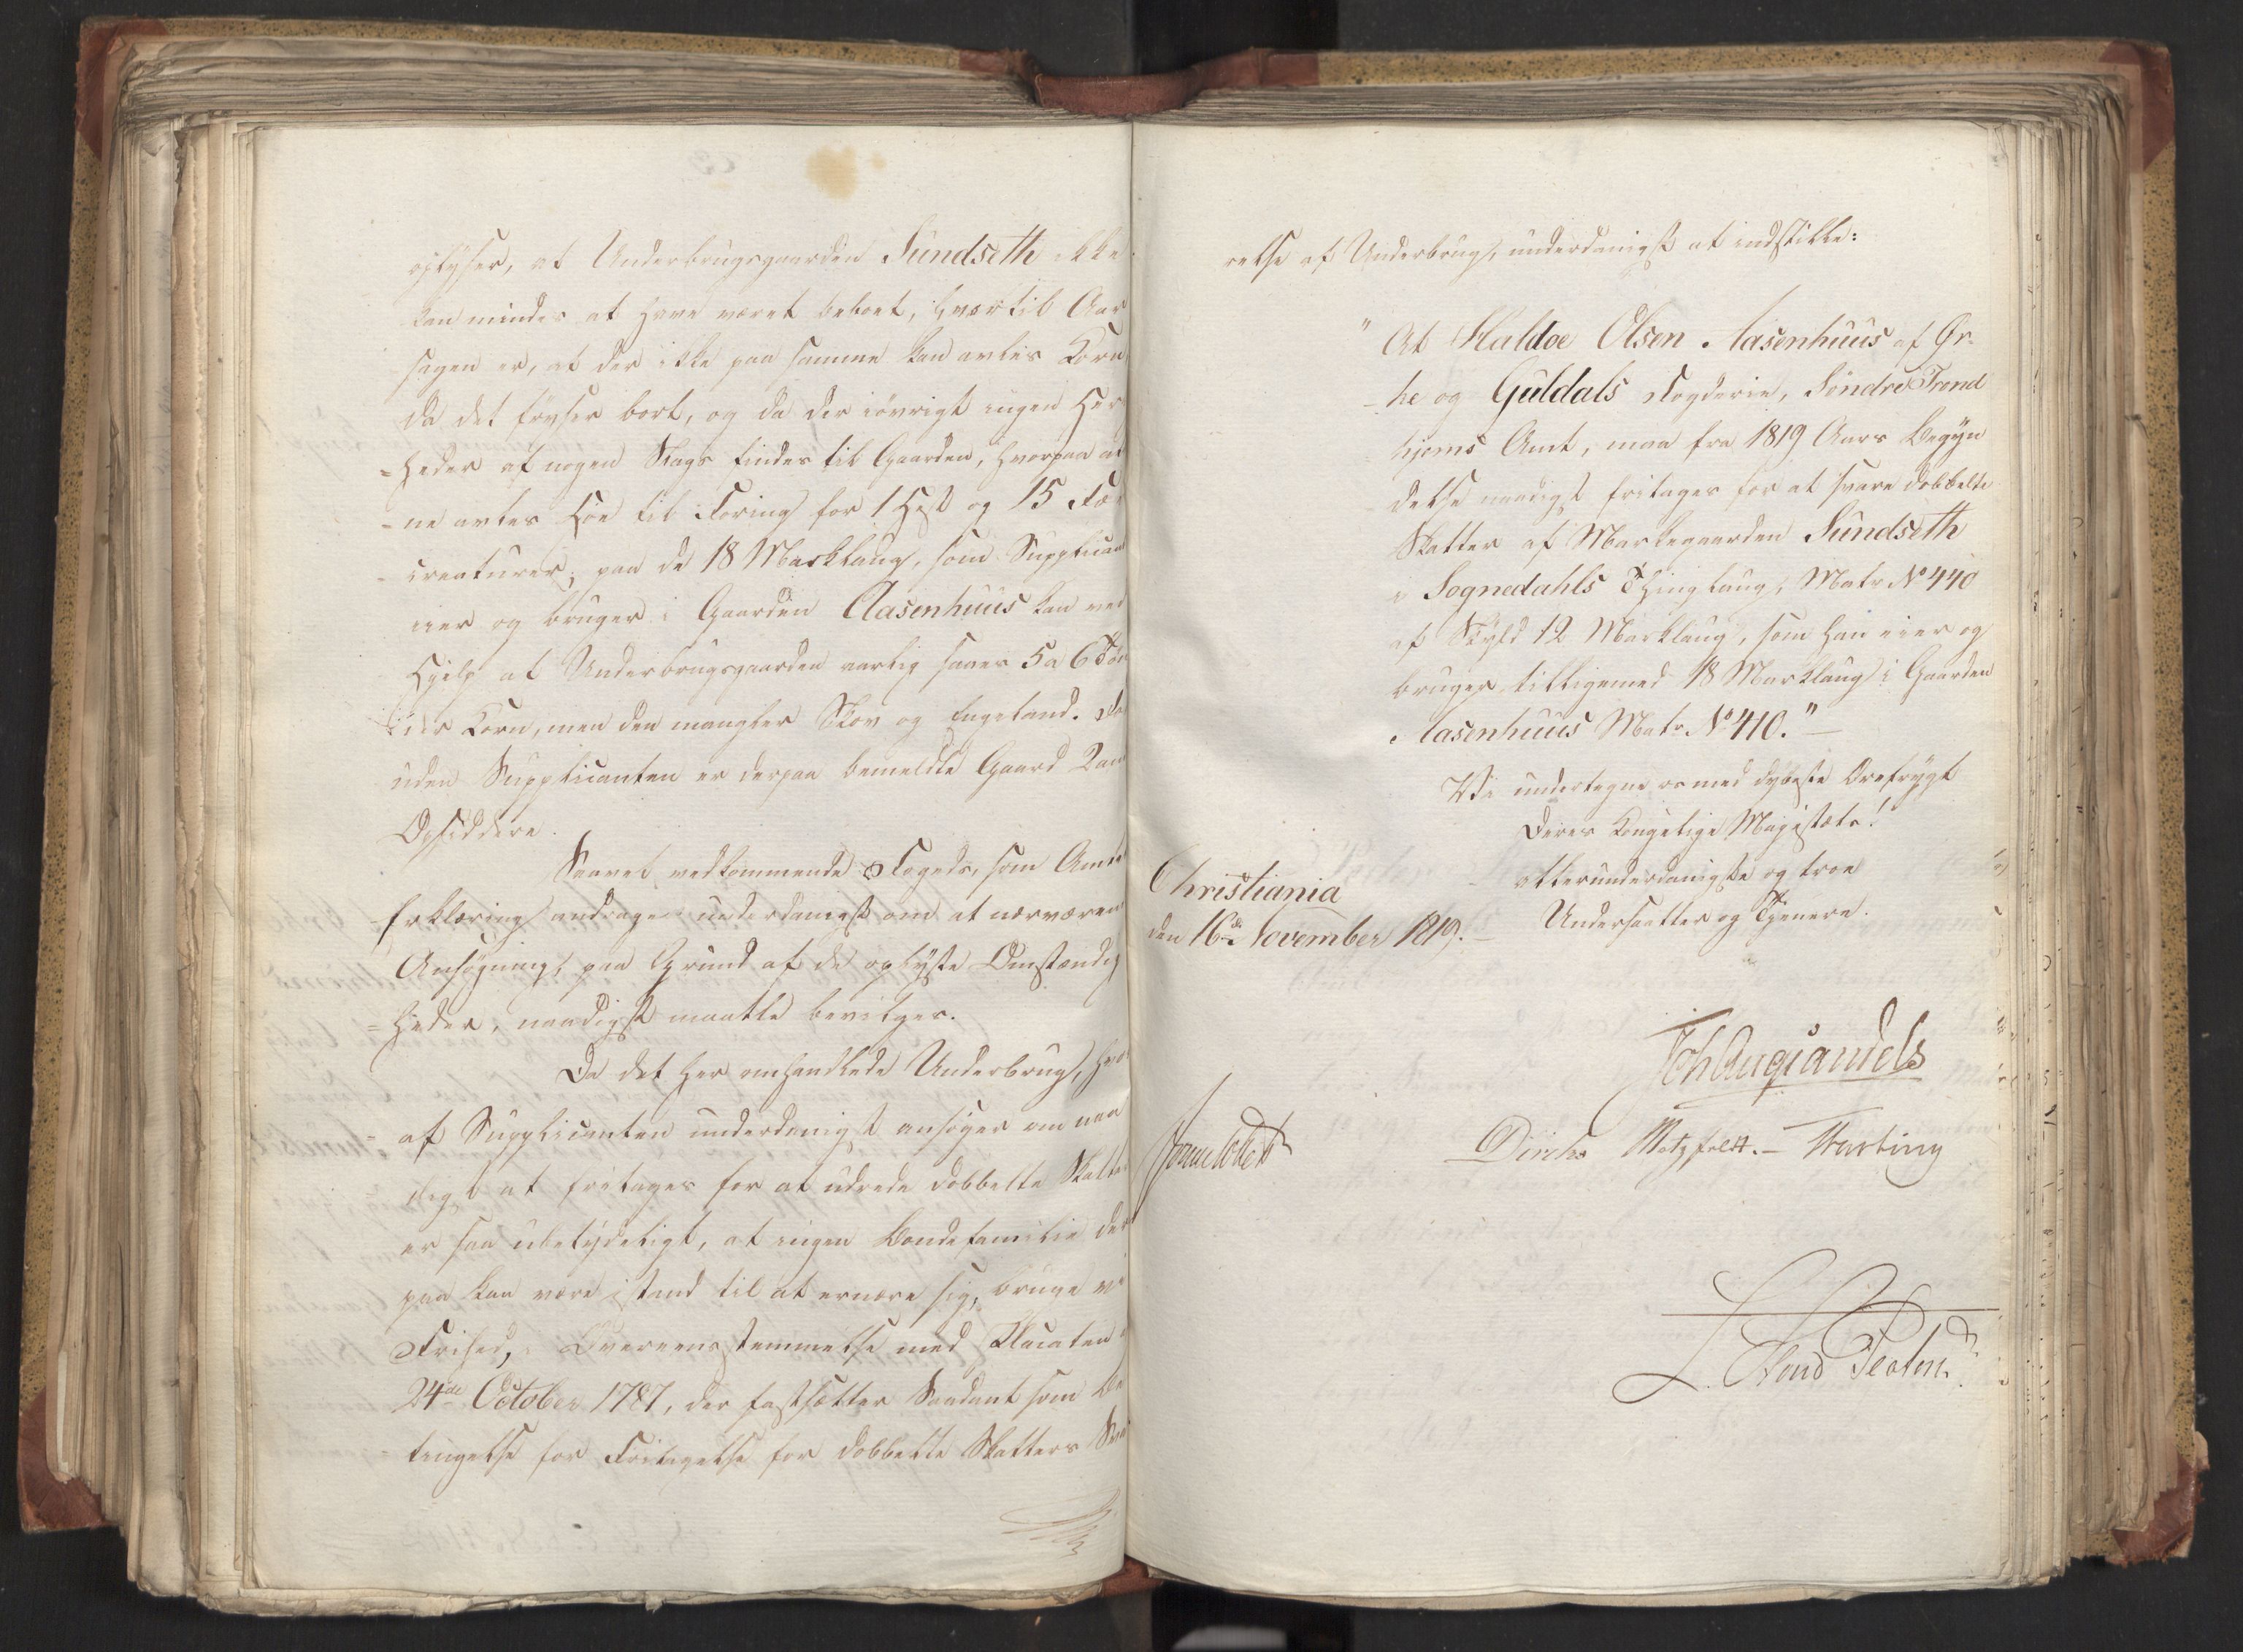 oplyser, at Underbrugsgaarden Sundseth ikke
kan mindes at have været beboet, hvortil Aar
sagen er, at der ikke paa samme kan avles Korn
da det fryser bort, og da der iøvrigt ingen Her
=heder af nogen Slags findes til Gaarden, hvorpaa al
=ne avles Høe til Foring for 1 Hest og 15 Fæ
=creaturer; paa de 18 Marklaug, som Supplican
eier og bruger i Gaarden Aasenhuus kan ved
Hjelp af Underbrugsgaarden aarlig saaes 5 a 6 Tøn
der Korn, men den mangler Skov og Engeland. For
uden Supplicanten er derpaa bemeldte Gaard 2 an
Opsiddere.
Saavel vedkommende Fogeds, som Amts
Erklæring andrage underdanigst om at nærværen
Ansøgning, paa Grund af de oplyste Omstændig
=heder, naadigst maatte bevilges.
Da det her omhandlede Underbrug, hvor
=af Supplicanten underdanigst ansøger om naa
digst at fritages for at udrede dobbelte Skatte
er saa ubetydeligt, at ingen Bondefamilie der
paa kan være istand til at ernære sig, bruge vi
Frihed, i Overeensstemmelse med Placaten
24de October 1787, der fastsætter Saadant som Be
tingelse for Fritagelse for dobbelte Skatters Sva
relse af Underbrug, underdanigst at indstille:
"At Haldoe Olsen Aasenhuus af Or-
-ke og Guldals Fogderie, Søndre Trond
hjems Amt, maa fra 1819 Aars Begyn
delse naadigst fritages for at svare dobbelte
Skatter af Markegaarden Sundseth
i Sognedahls Thinglaug, Matr. No 440
af Skyld 12 Marklaug, som han eier og
bruger tilligemed 18 Marklaug i Gaarden
Aasenhuus Matr. No 410."
Vi undertegne os med dybeste Ærefrygt
Deres Kongelige Majestæts!
allerunderdanigste og troe
Undersaatter og Tjenere.
Christiania
den 16de November 1819.
Diriks Motzfeldt.